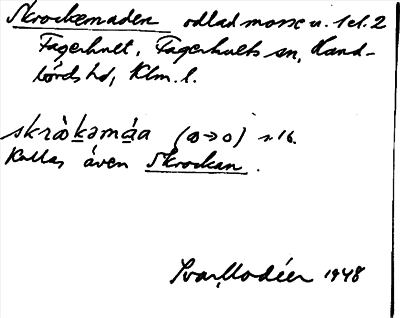 Skrockemaden odlad mosse u. 1 o. 2
Fagerhult, Fagerhults sn, Hand-
börds hd, Klm. l.
skròkəmáa (ɷ→o) s. 16.
Kallas även Skrockan.
Ivar Modéer 1948